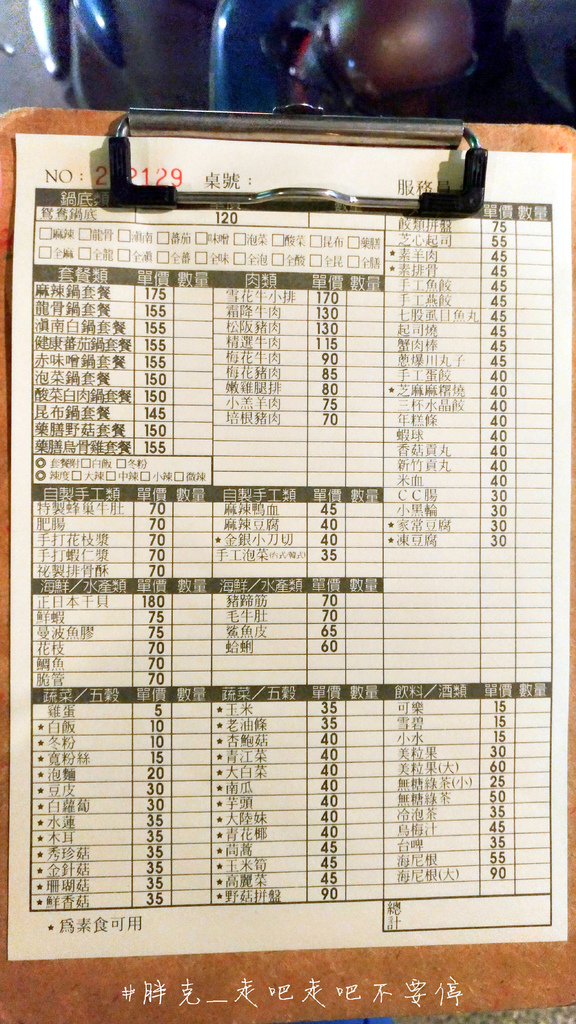 NO: 2 2129 桌號: 服務員
鍋底類 單價 數量
鴛鴦鍋底 120
□麻辣 □龍骨 □滇南 □蕃茄 □味噌 □泡菜 □酸菜 □昆布 □藥膳
□全麻 □全龍 □全滇 □全蕃 □全味 □全泡 □全酸 □全昆 □全膳
套餐類 單價 數量
麻辣鍋套餐 175
龍骨鍋套餐 155
滇南白鍋套餐 155
健康蕃茄鍋套餐 155
赤味噌鍋套餐 155
泡菜鍋套餐 150
酸菜白肉鍋套餐 150
昆布鍋套餐 145
藥膳野菇套餐 150
藥膳烏骨雞套餐 155
◎ 套餐附□白飯 □冬粉
◎ 辣度□大辣 □中辣 □小辣 □微辣
肉類 單價 數量
雪花牛小排 170
霜降牛肉 130
松阪豬肉 130
精選牛肉 115
梅花牛肉 90
梅花豬肉 85
嫩雞腿排 80
小羔羊肉 75
培根豬肉 70
單價 數量
餃類拼盤 75
芝心起司 55
★素羊肉 45
★素排骨 45
手工魚餃 45
手工燕餃 45
七股虱目魚丸 45
起司燒 45
蟹肉棒 45
蔥爆川丸子 45
手工蛋餃 40
★芝麻麻糬燒 40
三杯水晶餃 40
年糕條 40
蝦球 40
香菇貢丸 40
新竹貢丸 40
米血 40
CC腸 30
小黑輪 30
★家常豆腐 30
★凍豆腐 30
自製手工類 單價 數量
特製蜂巢牛肚 70
肥腸 70
手打花枝漿 70
手打蝦仁漿 70
祕製排骨酥 70
自製手工類 單價 數量
麻辣鴨血 45
麻辣豆腐 40
★金銀小刀切 40
手工泡菜(台式/韓式) 35
海鮮／水產類 單價 數量
正日本干貝 180
鮮蝦 75
曼波魚膠 75
花枝 70
鯛魚 70
脆管 70
海鮮／水產類 單價 數量
豬蹄筋 70
毛牛肚 70
鯊魚皮 65
蛤蜊 60
蔬菜／五穀 單價 數量
雞蛋 5
★白飯 10
★冬粉 10
★寬粉絲 15
★泡麵 20
★豆皮 30
★白蘿蔔 30
★水蓮 35
★木耳 35
★秀珍菇 35
★金針菇 35
★珊瑚菇 35
★鮮香菇 35
蔬菜／五穀 單價 數量
★玉米 35
★老油條 35
★杏鮑菇 40
★青江菜 40
★大白菜 40
★南瓜 40
★芋頭 40
★大陸妹 40
★青花椰 40
★茼蒿 45
★玉米筍 45
★高麗菜 45
★野菇拼盤 90
飲料／酒類 單價 數量
可樂 15
雪碧 15
小水 15
美粒果 30
美粒果(大) 60
無糖綠茶(小) 25
無糖綠茶 50
冷泡茶 35
烏梅汁 45
台啤 35
海尼根 55
海尼根(大) 90
★為素食可用
總計
#胖克_走吧走吧不要停